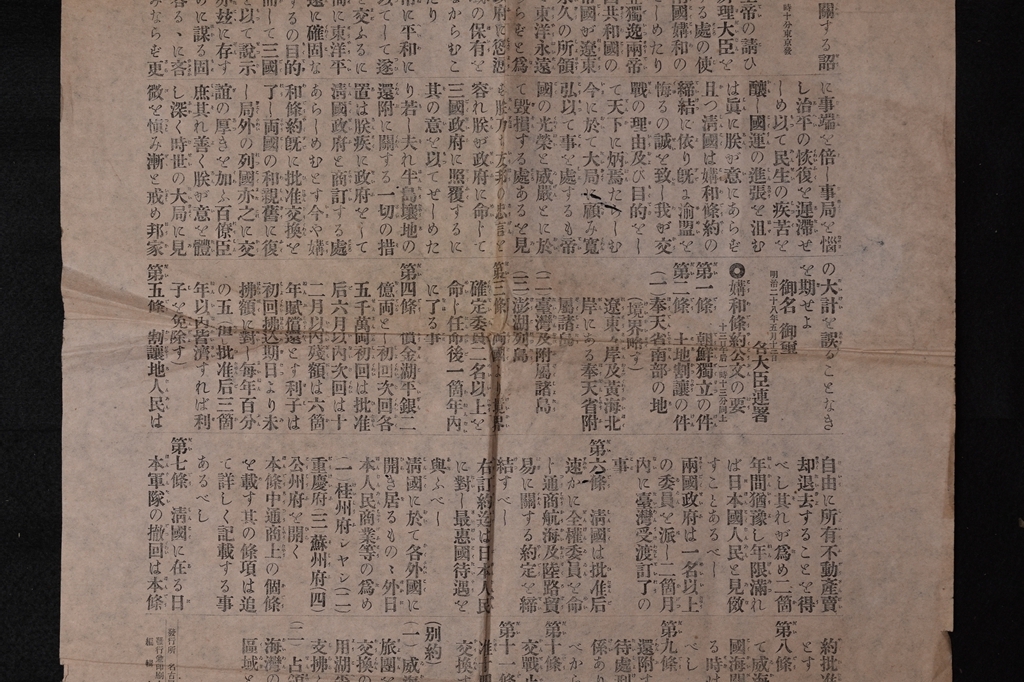 關する詔
時十分東京發
帝の請ひ
理大臣を
る處の使
國媾和の
しめたり
獨逸兩帝
國共和國の
國が遼東
久の所領
東洋永遠
らをと爲
府に慫慂
の保有を
からむこ
たり
に平和に
てして遂
と交ふるに
に東洋平
に確固な
するの目的
して三國
以て說示
玆に存す
に謀る固
容るゝに客
みならを更
に事端を倍し事局を惱
し治平の恢復を遲滯せ
しめ以て民生の疾苦を
釀し國運の進張を沮む
は眞に朕が意にあらを
且つ淸國は媾和條約の
締結に依り旣よ渝盟を
悔るの誠を致し我が交
戰の理由及び目的をし
て天下に炳焉たらしむ
今に於て大局に顧み寬
弘以て事を處するも帝
國の光榮と威嚴とに於
て毀損する處あるを見
も朕乃ち友邦の忠言を
容れ朕が政府に命して
三國政府に照覆するに
其の意を以てせしめた
り若し夫れ半島壤地の
還附に關する一切の措
置は朕疾に政府をして
淸國政府と商訂する處
あらしめむとす今や媾
和條約旣に批准交換を
了し兩國の和親舊に復
し局外の列國亦之に交
誼の厚きを加ふ百僚臣
庶其れ善く朕が意を體
し深く時世の大局に見
微を愼み漸を戒め邦家
の大計を誤ることなき
を期せよ
御名 御璽
明治二十八年五月十三日
各大臣連署
◉媾和條約公文の要
十三日午前一時十三分同上
第一條 朝鮮獨立の件
第二條 土地割讓の件
(一)奉天省南部の地
(境界略す)
遼東ゝ岸及黃海北
岸にある奉天省附
屬諸島
(二)臺灣及附屬諸島
(三)澎湖列島
第三條 兩國
確定委員二名以上を
命し任命後一箇年內
に了る事
第四條 償金湖平銀二
億両とし初回次回各
五千萬両初回は批准
后六月以內次回は十
二月以內殘額は六箇
年賦償還とす利子は
初回拂込期日より未
拂額に對し每年百分
の五 但し批准后三箇
年以內皆濟すれば利
子を免除す)
第五條 割讓地人民は
自由に所有不動產賣
却退去することを得
べし其れが爲め二箇
年間猶豫し年限滿れ
ば日本國人民と見做
すことあるべし
兩國政府は一名以上
の委員を派し二箇月
內に臺灣受渡訂了の
事
第六條 淸國は批准后
速かに全權委員を命
し通商航海及陸路貿
易に關する約定を締
結すべし
右訂約迄は日本人民
に對し最惠國待遇を
與ふべし
淸國に於て各外國に
開き居るものゝ外日
本人民商業等の爲め
一桂州府シヤシ(二)
重慶府(三)蘇州府(四)
公州府を開く
本條中通商上の個條
を載す其の條項は追
て詳しく記載する事
あるべし
第七條 淸國に在る日
本軍隊の撤回は本條
約批
とす
第八條
て威海
國海關
る時は
べし
第九條
還附す
待處刑
係あり
第十條
べから
交戰止
第十一條
准
交換す
(別約)
(一)威海
旅團
交換の
用湖
支拂ふ
(二)占領
海灣の
區域と
發行所 名古
發行兼印刷
編輯